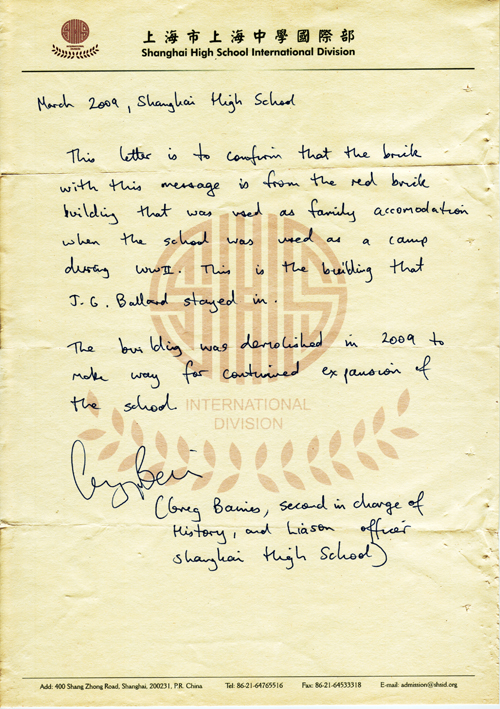 上海市上海中學國際部
Shanghai High School International Division
March 2009, Shanghai High School
This letter is to confirm that the brick
with this message is from the red brick
building that was used as family accomodation
when the school was used as a camp
during WWII. This is the building that
J.G. Ballard stayed in.
The building was demolished in 2009 to
make way for continued expansion of
the school.
SHSID
INTERNATIONAL
DIVISION
(Greg Baines, second in charge of
History, and Liason officer
Shanghai High School)
Add: 400 Shang Zhong Road, Shanghai, 200231, P.R. China Tel: 86-21-64765516 Fax: 86-21-64533318 E-mail: admission@shsid.org